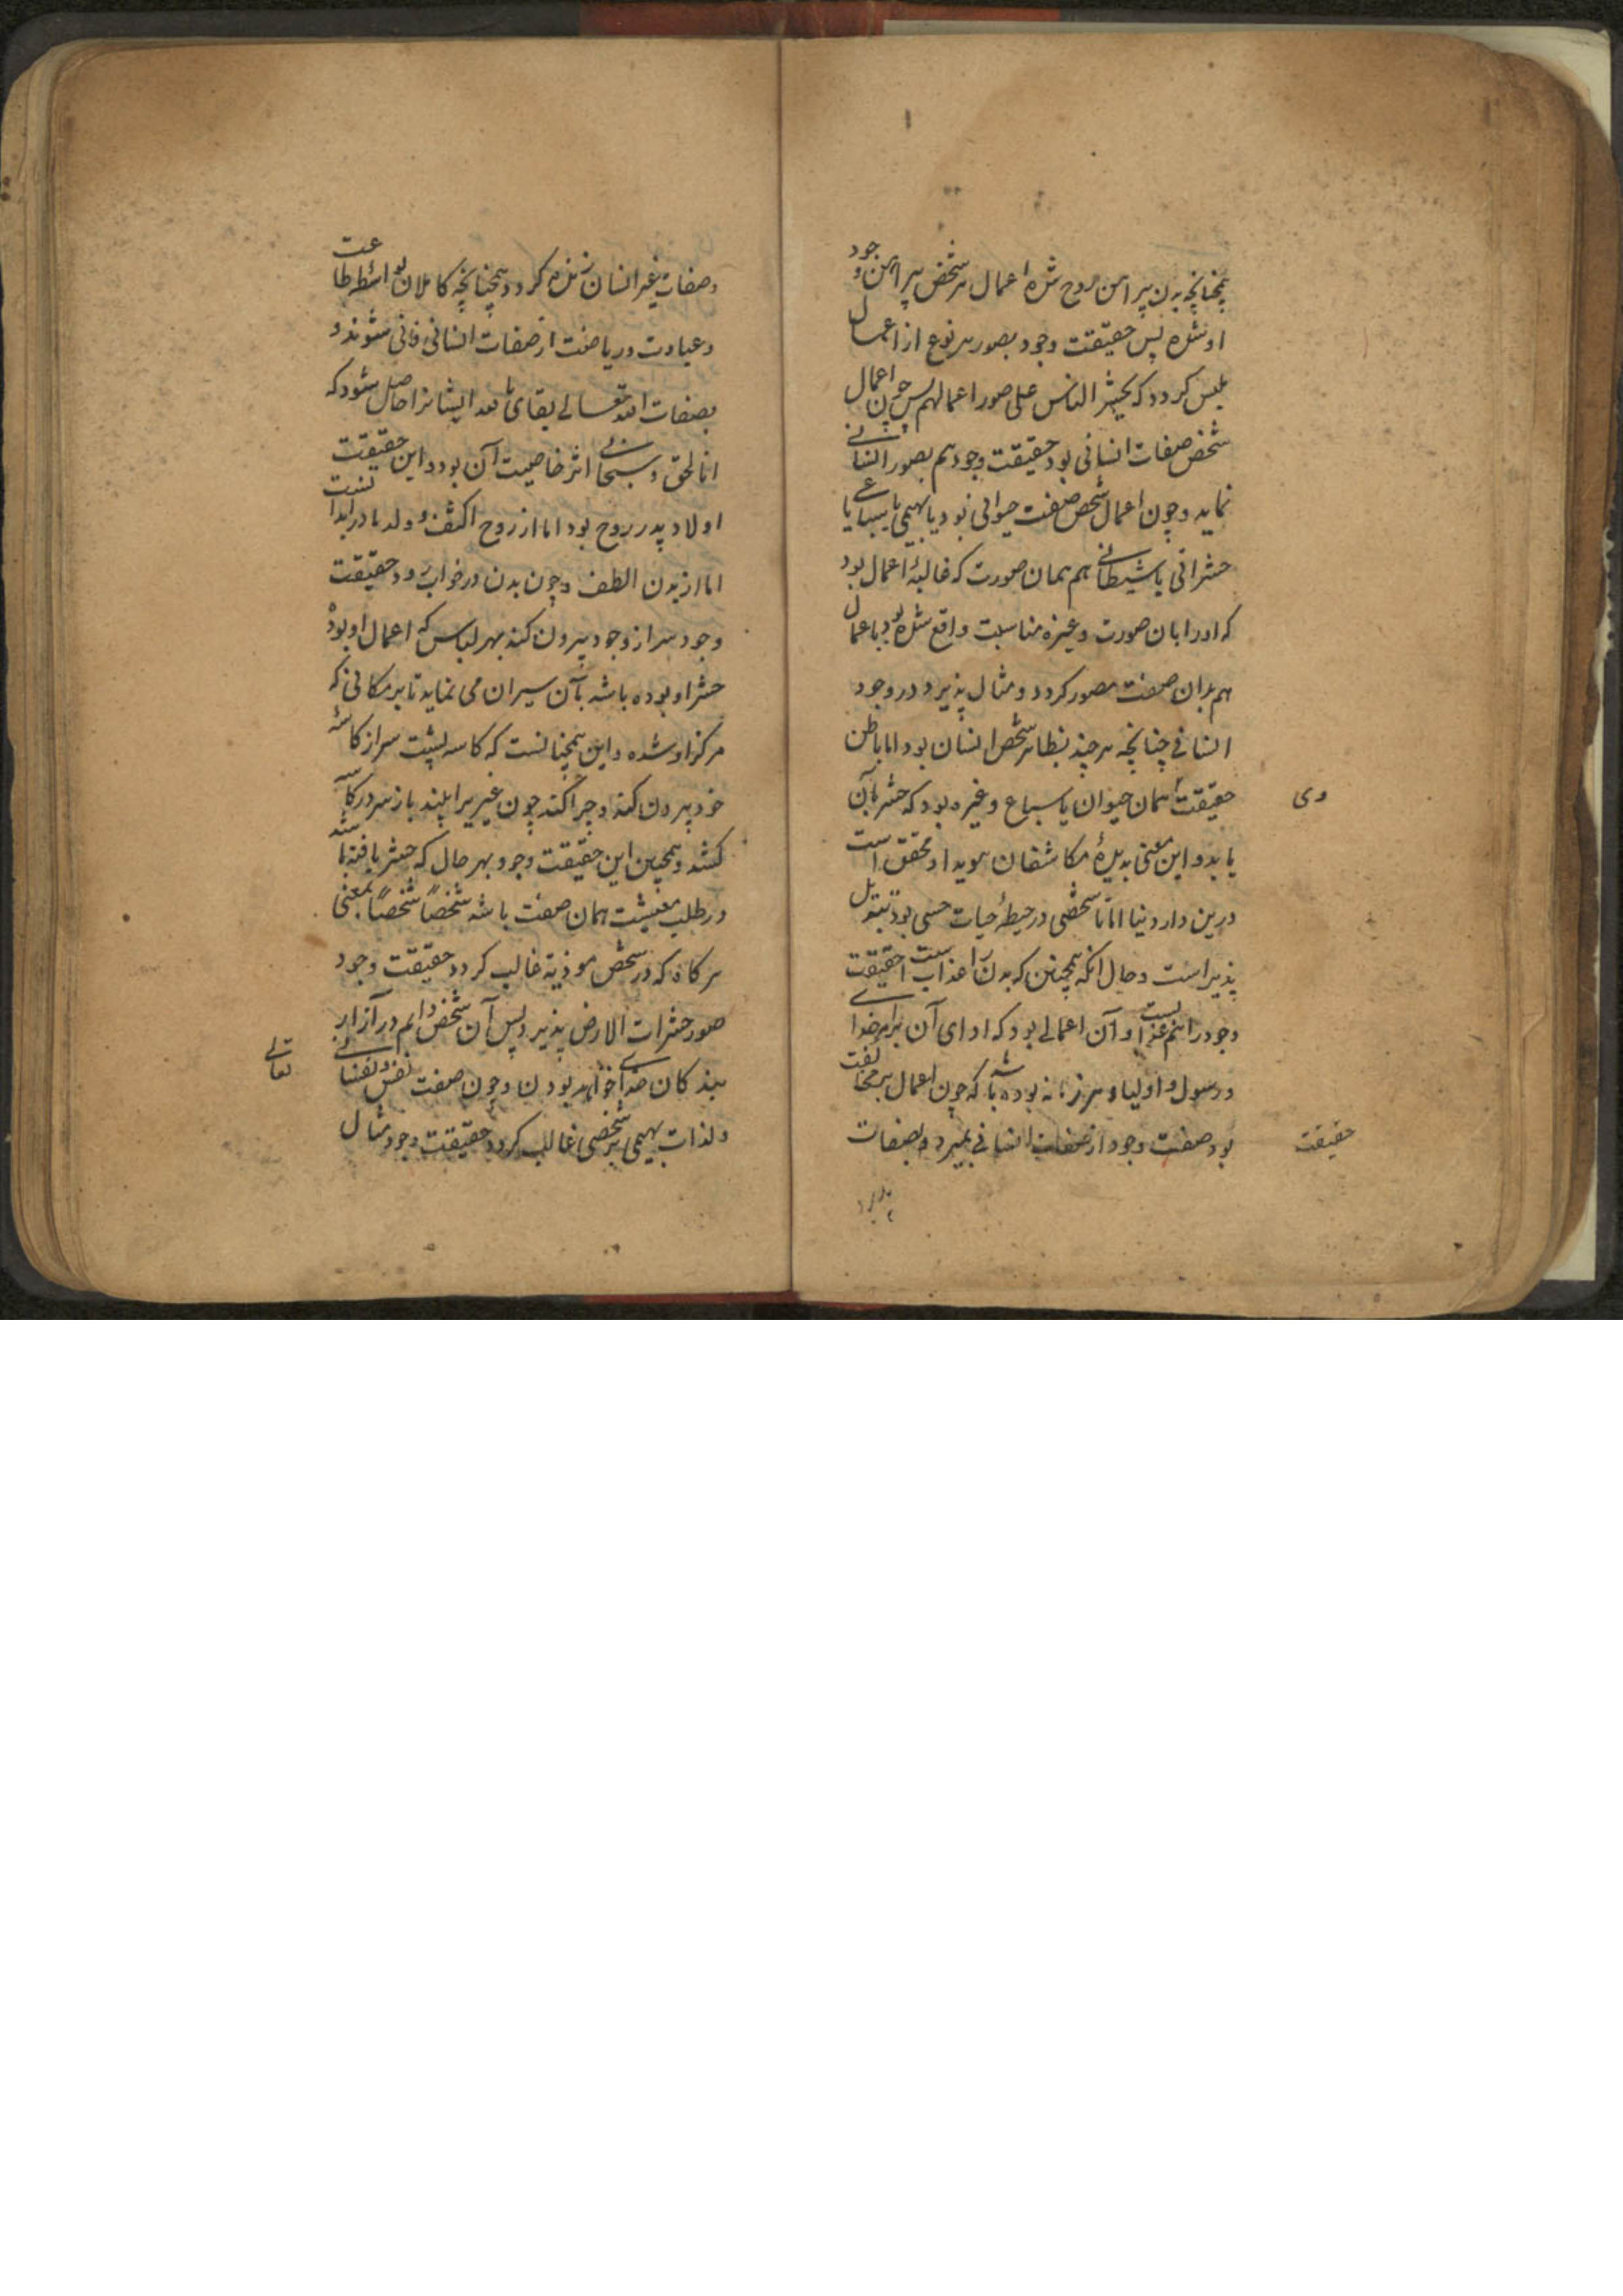 همچنانچه بدن پیراهن روح شده اعمال هر شخص پیراهن وجود
او شده پس حقیقت وجود بصور هر نوع از اعمال
ملبس کردد که یحشر الناس علی صور اعمالهم پس چون اعمال
شخص صفات انسانی بود حقیقت وجود هم بصور انسانی
نماید و چون اعمال شخص صفت حیوانی بود یا بهیمی یا سباعی یا
حشراتی یا شیطانی هم همان صورت که غالبهٔ اعمال بود
که او را بان صورت و غیره مناسبت واقع شده بود باعمال
هم بران صفت مصور کردد و مثال پذیرد در وجود
انسانی چنانچه هر چند بظاهر شخص انسان بود اما باطن
حقیقت همان حیوان یا سباع و غیره بود که حشر بآن
وی
یابد و این معنی بدیدهٔ مکاشفان هویدا و محقق است
درین دار دنیا اما تا شخصی در حیطهٔ حیات حسی بود تبدیل
پذیر است و حال انکه همچنین که بدن را عذاب است حقیقت
وجود را هم غذا است و آن اعمالی بود که ادای آن برای خدا
و رسول و اولیا و هر ز مانه بوده باشد که چون اعمال بر مخالفت
بود صفت وجود از صفات انسانی بمیرد و بصفات
حقیقت
وصفات غیر انسان زنده کردد همچنانچه کاملان بواسطه طاعت
و عبادت و ریاضت از صفات انسانی فانی شوند و
بصفات الله تعالی بقای بالله ایشانرا حاصل شود که
انا الحق و سبحانی اثر خاصیت آن بود و این حقیقت
اولاد پدر روح بود اما از روح اکثف و ولد مادر بدنست
اما از بدن الطف و چون بدن در خواب رود حقیقت
وجود سر از وجود بیرون کند بهر لباس که اعمال او بوده
حشر او بوده باشد بآن سیران می نماید تا بر مکانی که
مرکز او شده و این همچنانست که کاسه پشت سر از کاسه
خود بیرون کند و چرا کند چون غیر یرا بیند باز سر در کاسه
کشد و همچنین این حقیقت وجود بهر حال که حشر یافته باشد
در طلب معیشت همان صفت باشد شخصاً شخصاً بمعنی
هر کاه که در شخص موذیه غالب کردد حقیقت وجود
صور حشرات الارض پذیرد پس آن شخص دایم در آزار
بندکان خدای خواهد بودن و چون صفت نفس و نفسانی
تعالی
و لذات بهیمی بر شخصی غالب کردد حقیقت وجود مثال